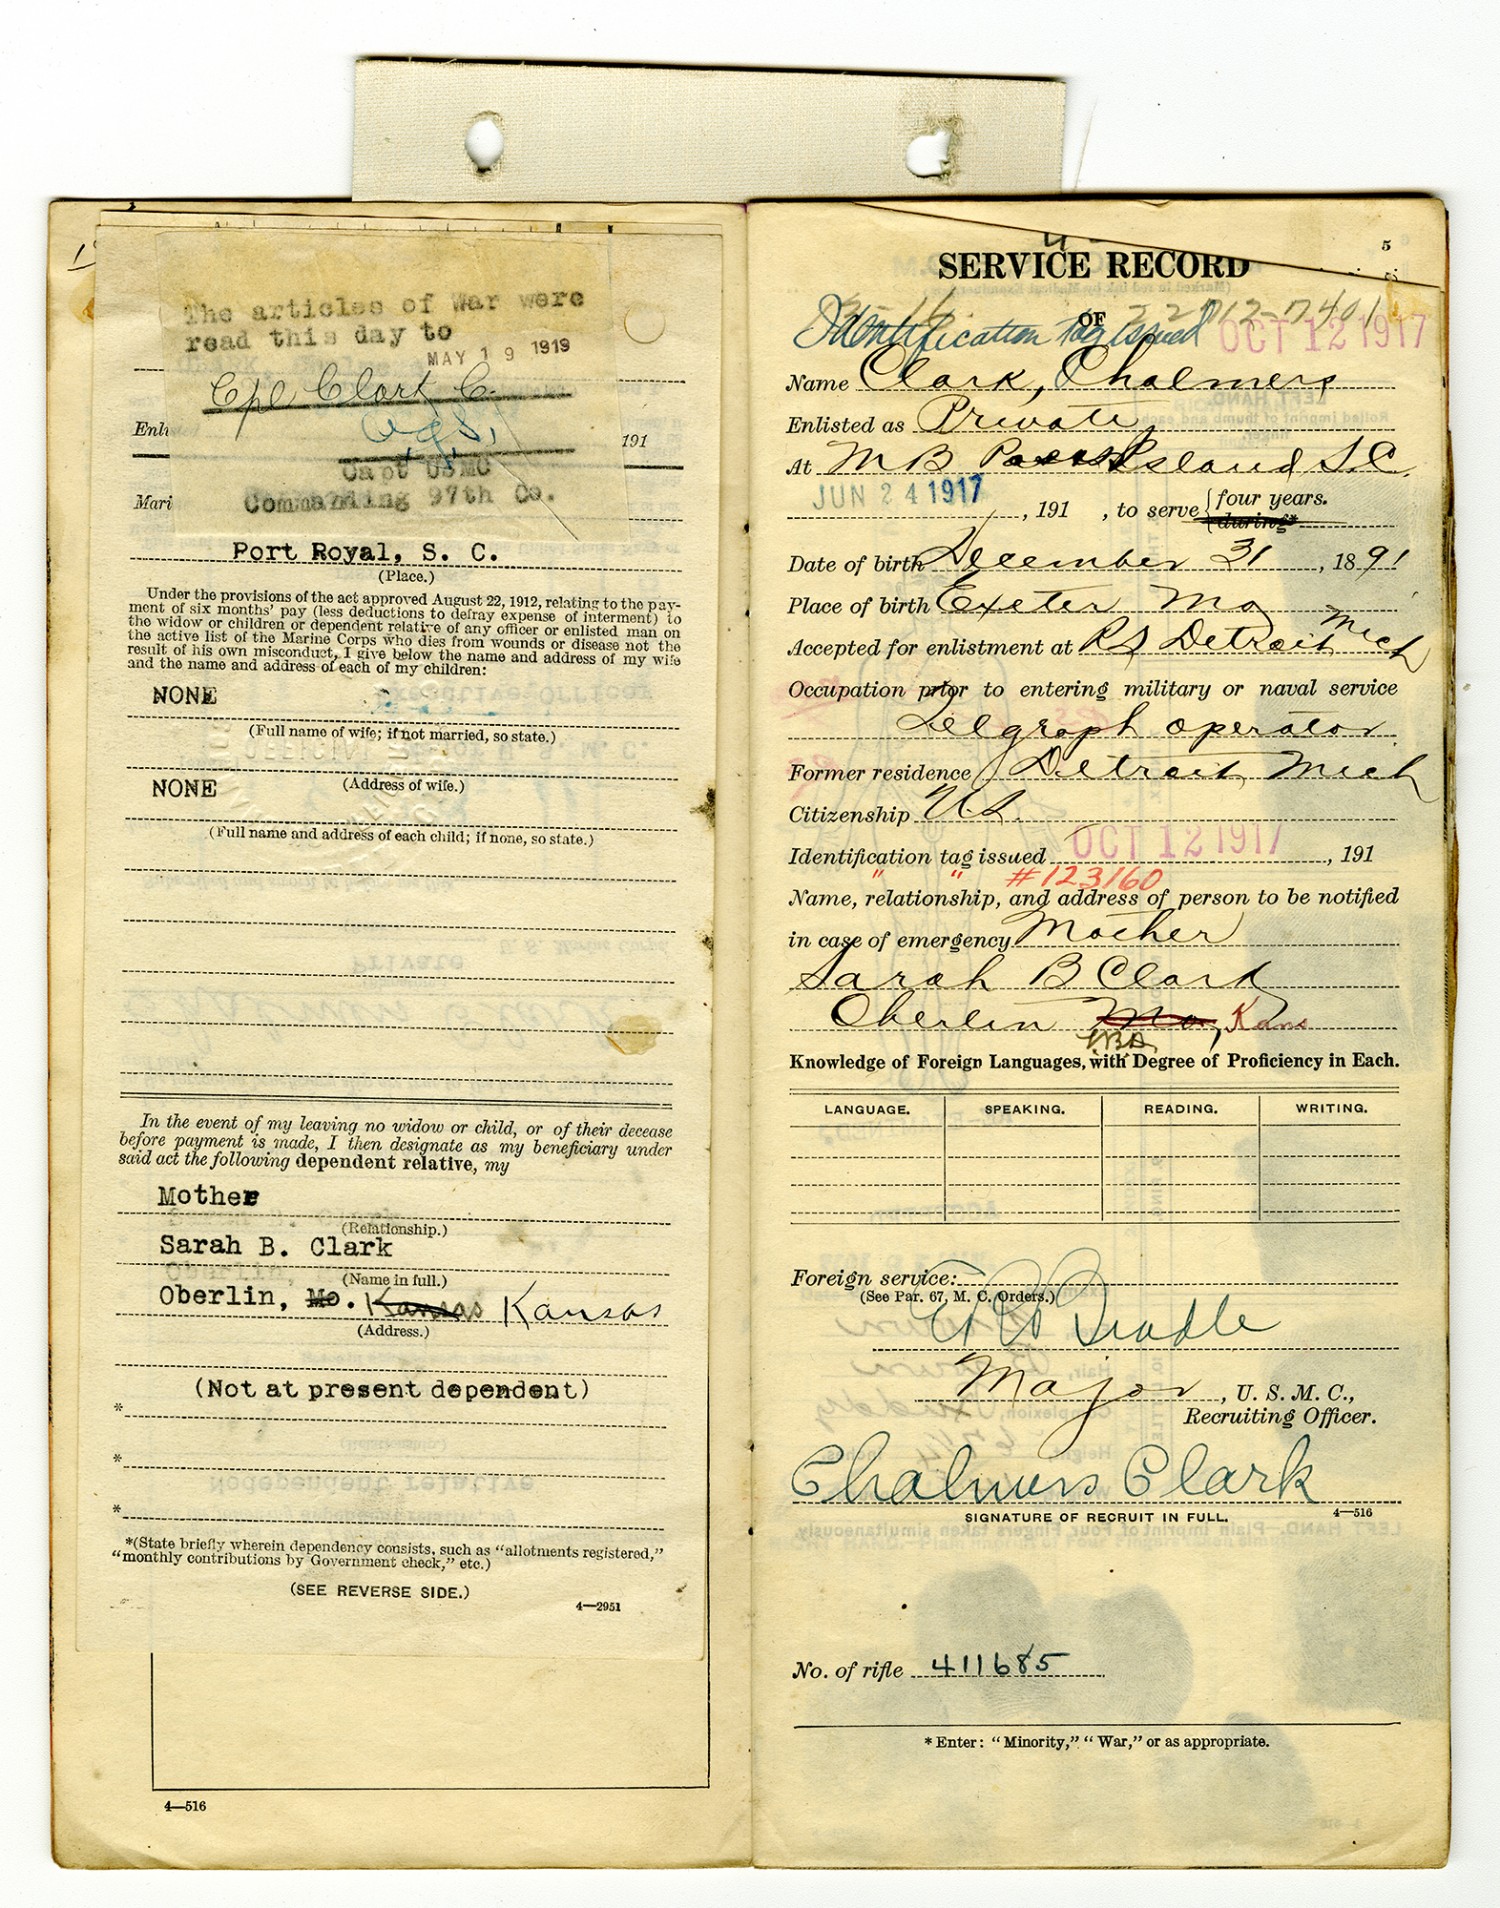 The articles of War were
read this day to
MAY 19 1919
Cpl Clark C.
Enli 191
Capt USMC
Mari Commanding 97th Co.
Port Royal, S. C.
(Place.)
Under the provisions of the act approved August 22, 1912, relating to the pay-
ment of six months' pay (less deductions to defray expense of interment) to
the widow or children or dependent relative of any officer or enlisted man on
the active list of the Marine Corps who dies from wounds or disease not the
result of his own misconduct, I give below the name and address of my wife
and the name and address of each of my children:
NONE
(Full name of wife; if not married, so state.)
(Address of wife.)
NONE
(Full name and address of each child; if none, so state.)
In the event of my leaving no widow or child, or of their decease
before payment is made, I then designate as my beneficiary under
said act the following dependent relative, my
Mother
(Relationship.)
Sarah B. Clark
(Name in full.)
Oberlin, Mo. Kansas Kansas
(Address.)
(Not at present dependent)
*
*
*
*(State briefly wherein dependency consists, such as "allotments registered,"
"monthly contributions by Government check," etc.)
(SEE REVERSE SIDE.)
4—2951
4—516
5
SERVICE RECORD
OF
Identification tag issued OCT 12 1917
Name Clark, Chalmers
Enlisted as Private,
At M B Paris Island S.C.
JUN 24 1917, 191 , to serve four years.
during*
Date of birth December 31, 1891
Place of birth Exeter Mo
Accepted for enlistment at RS Detroit Mich
Occupation prior to entering military or naval service
Telgraph operator
Former residence Detroit, Mich
Citizenship U.S.
Identification tag issued OCT 12 1917, 191
" " #123160
Name, relationship, and address of person to be notified
in case of emergency Mother
Sarah B Clark
Oberlin Mo, Kans
Knowledge of Foreign Languages, with Degree of Proficiency in Each.
LANGUAGE. SPEAKING. READING. WRITING.
Foreign service:
(See Par. 67, M. C. Orders.)
Major, U. S. M. C.,
Recruiting Officer.
Chalmers Clark
SIGNATURE OF RECRUIT IN FULL. 4—516
No. of rifle 411685
* Enter: "Minority," "War," or as appropriate.